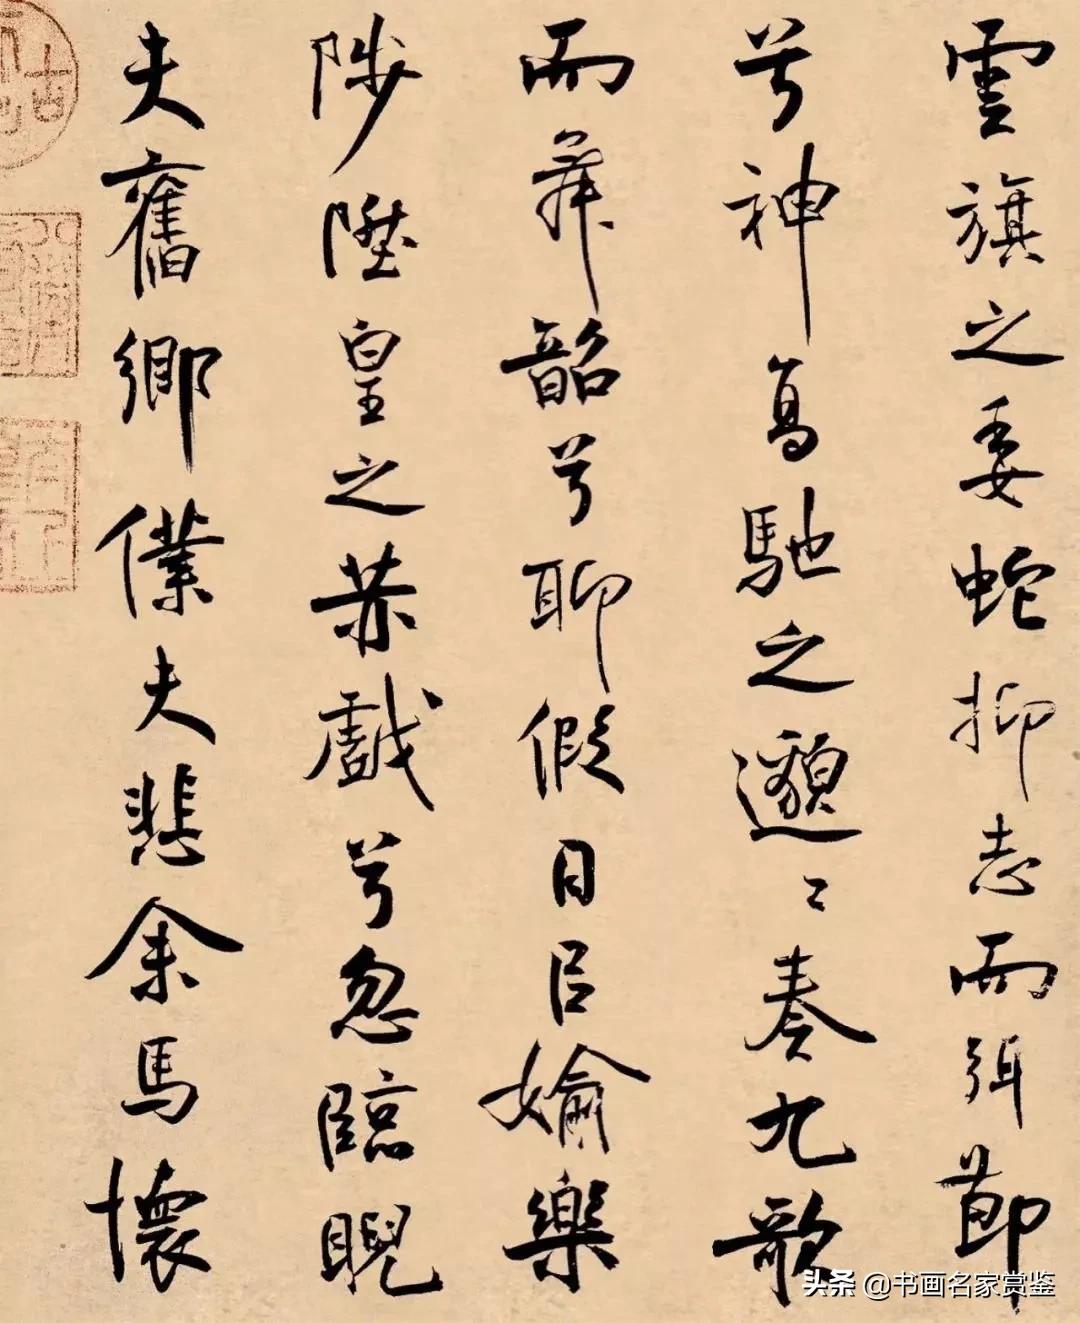 雲旗之委蛇抑志而弭節
兮神高馳之邈〻奏九歌
而舞韶兮聊假日㠯媮樂
陟陞皇之赫戲兮忽臨睨
夫舊鄉僕夫悲余馬懷
头条 @书画名家赏鉴